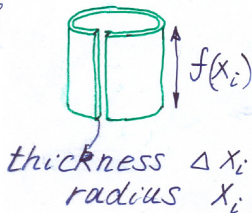 f(xᵢ)
thickness Δ xᵢ
radius xᵢ